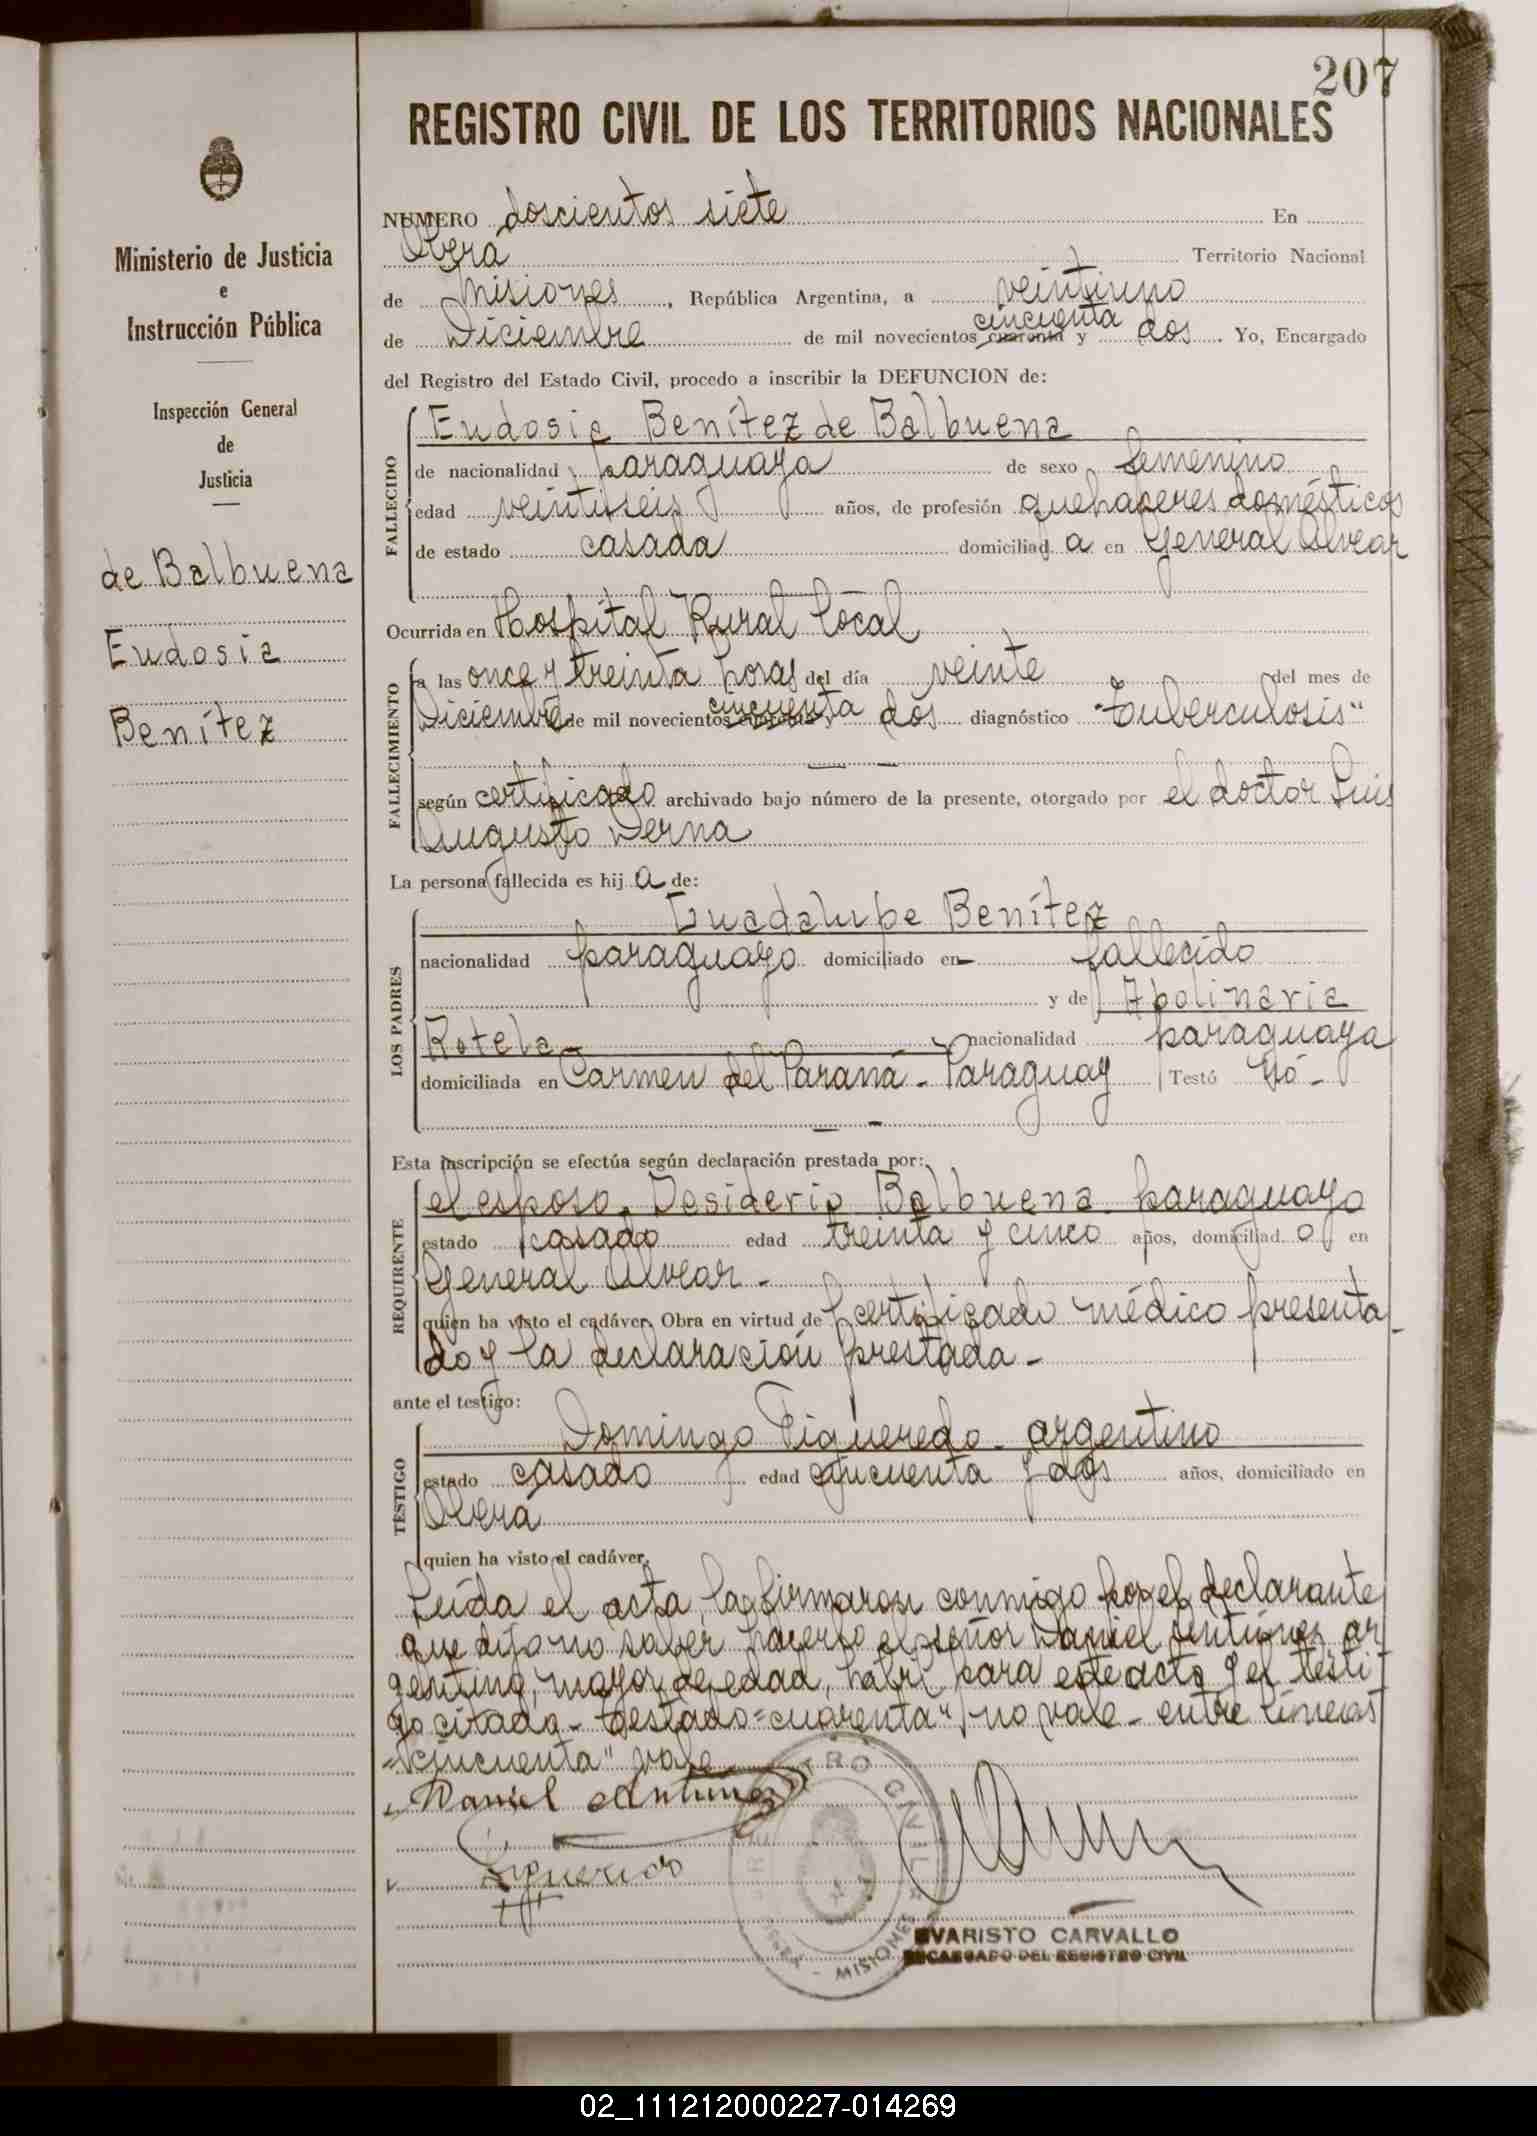 207
REGISTRO CIVIL DE LOS TERRITORIOS NACIONALES
Ministerio de Justicia
e
Instrucción Pública
Inspección General
de
Justicia
de Balbuena
Eudosia
Benítez
NUMERO doscientos siete En
Oberá Territorio Nacional
de Misiones, República Argentina, a veintiuno
cincuenta
de Diciembre de mil novecientos cuarenta y dos. Yo, Encargado
del Registro del Estado Civil, procedo a inscribir la DEFUNCION de:
FALLECIDO
Eudosia Benítez de Balbuena
de nacionalidad paraguaya de sexo femenino
edad veintiseis años, de profesión quehaceres domésticos
de estado casada domiciliad a en General Alvear
Ocurrida en Hospital Rural local
FALLECIMIENTO
a las once y treinta horas del día veinte del mes de
cincuenta
Diciembre de mil novecientos cuarenta y dos diagnóstico "Tuberculosis"
según certificado archivado bajo número de la presente, otorgado por el doctor Luis
Augusto Derna
La persona fallecida es hij a de:
LOS PADRES
Guadalupe Benítez
nacionalidad paraguayo domiciliado en fallecido
y de Apolinaria
Rotela nacionalidad paraguaya
domiciliada en Carmen del Paraná - Paraguay Testó
Esta inscripción se efectúa según declaración prestada por:
REQUIRENTE
el esposo, Desiderio Balbuena - paraguayo
estado casado edad treinta y cinco años, domiciliad o en
General Alvear -
quien ha visto el cadáver. Obra en virtud de certificado médico presenta-
do y la declaración prestada -
ante el testigo:
TESTIGO
Domingo Figueredo - argentino
estado casado edad cincuenta y dos años, domiciliado en
Oberá
quien ha visto el cadáver.
Leída el acta, la firmaron conmigo por el declarante
que dijo no saber hacerlo el señor Daniel Antúnez, ar
gentino, mayor de edad, hábil para este acto y el testi-
go citado - testado "cuarenta" no vale - entre líneas
"cincuenta" vale
Daniel Antunez
REGISTRO CIVIL
MISIONES
EVARISTO CARVALLO
ENCARGADO DEL REGISTRO CIVIL
02_111212000227-014269